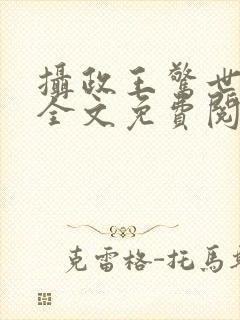 攝政王驚世
全文免費閱
克雷格-托馬斯